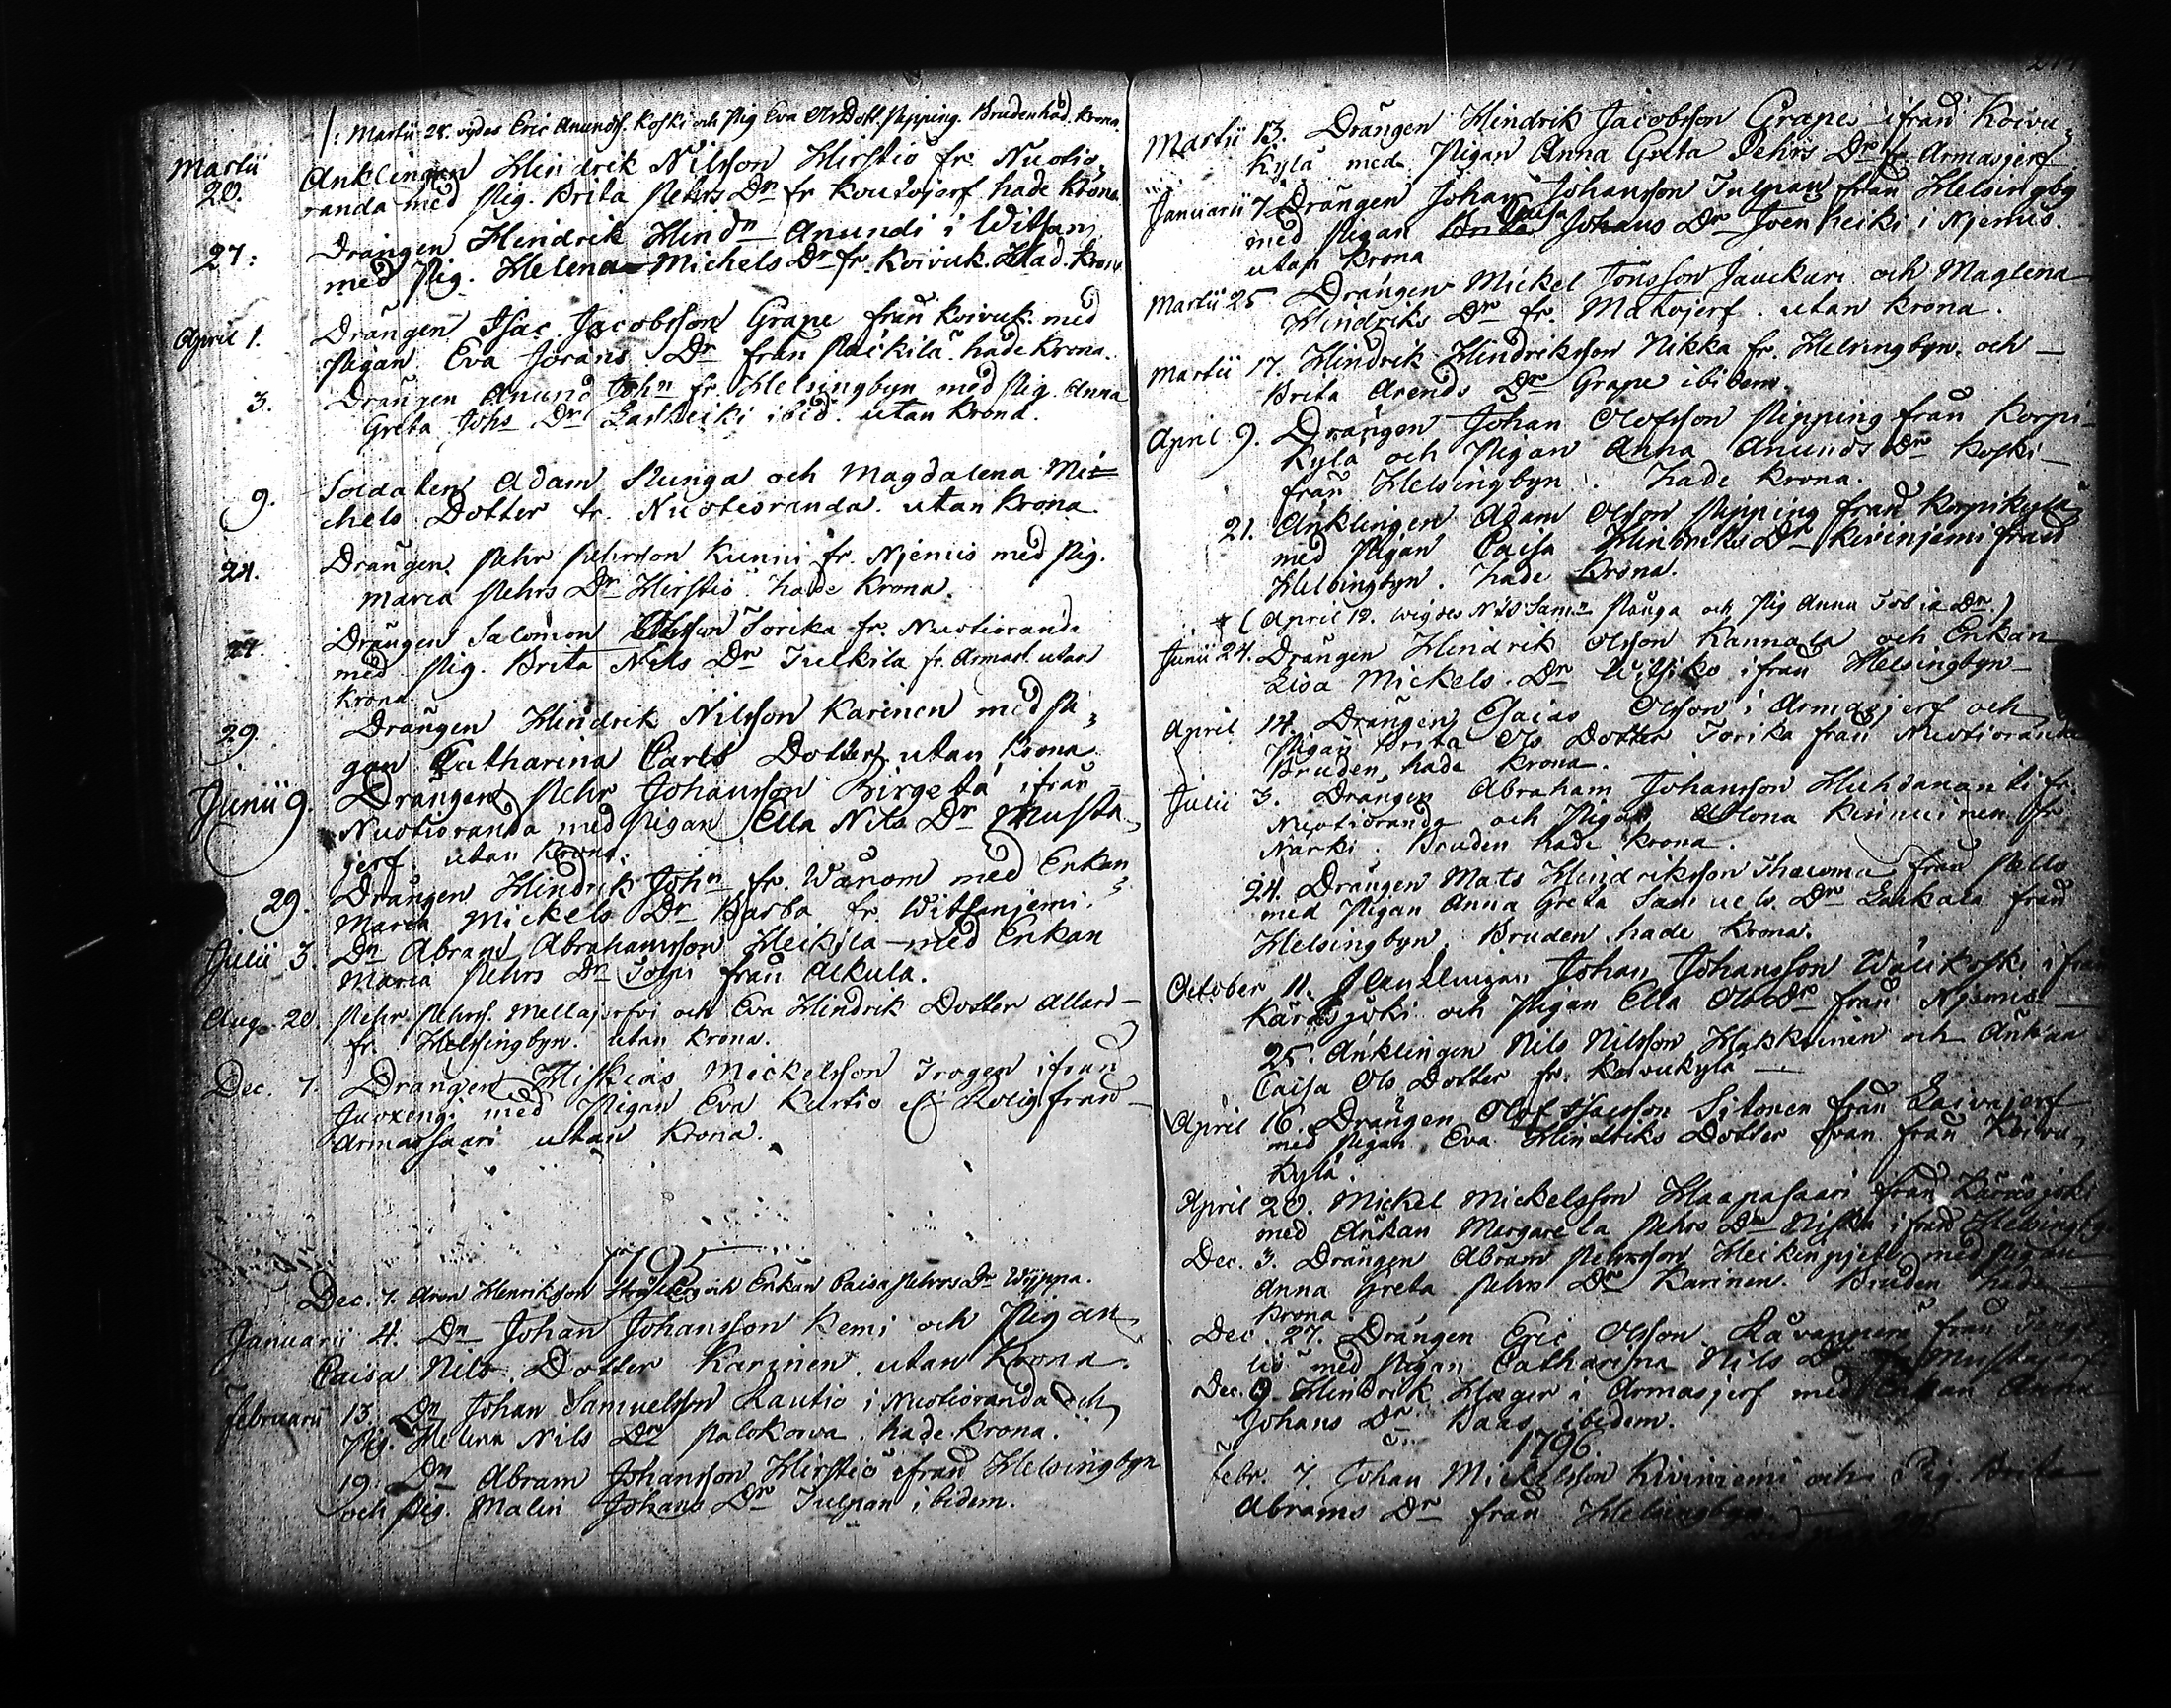 /: Martii 28. vigdes Eric Anundss. Koski och Pig Eva Ols Dott. Pipping. Bruden had. Krona.
Martii 20. Anklingen Hindrik Nilsson Hirstio fr. Nuotio,
randa med Pig. Brita Pehrs Dr fr Koutojerf hade Krona.
27. Drängen Hindrik Hindn Anundi i Witsan,
med Pig. Helena Michels Dr fr. Koivuk. Had. Krona
April 1. Drängen Isac Jacobsson Grape från Koivuk. med
Pigan Eva Jorans Dr från Päckilä hade Krona.
3. Drängen Anund John fr. Helsingbyn med Pig. Anna
Greta Johs Dr Lassheiki ibid. utan Krona.
9. Soldaten Adam Slunga och Magdalena Mi=
chels Dotter fr. Nuotioranda. utan Krona
24. Drängen Pehr Pehrsson Kunni fr. Njemis med Pig.
Maria Pehrs Dr Hirstio hade Krona.
24. Drängen Salomon Olsson Torika fr. Nuotioranda
med Pig. Brita Nils Dr Tulkila fr. Armass. utan
Krona
29. Drängen Hindrik Nilsson Karinen med Pi,
gan Catharina Carls Dotter utan Krona.
Junii 9. Drängen Pehr Johansson Birgetå ifrån
Nuotioranda med Pigan Ella Nils Dr Musta,
jerf. utan Krona.
29. Drängen Hindrik John fr. Wanom med Enkan
Maria Mickels Dr Barba fr. Witsanjemi.
Julii 3. Dn Abram Abrahamsson Heikila med Enkan
Maria Pehrs Dr Tolpi från Alkula.
Aug. 20. Pehr Pehrs. Mellajerfvi och Eva Hindrik Dotter Allard
fr. Helsingbyn. utan Krona.
Dec. 7. Drängen Hiskias Mickelsson Trogen ifrån
Juoxengi med Pigan Eva Kurtio Rolig från
Armassaari utan Krona.
1795
Dec. 7. Aron Henriksson Strålberg och Enkan Caisa Pehrs Dr Wyppa.
Januarii 4. Dn Johan Johansson Kemi och Pigan
Caisa Nils Dotter Karinen. utan Krona.
Februarii 13 Dn Johan Samuelsson Rautio i Nuotioranda och
Pig. Helena Nils Dr Palokorva. hade Krona.
19. Dn Abram Johansson Hirstio ifrån Helsingbyn
och Pig. Malin Johans Dr Tulpan ibidem.
Martii 13. Drängen Hindrik Jacobsson Grape ifrån Koivu,
kyla med Pigan Anna Greta Pehrs Dr fr. Armasjerf
Januarii 7 Drängen Johan Johansson Tulpan från Helsingby
med Pigan Brita Caisa Johans Dr Joenheiki i Njemis.
utan Krona
Martii 25 Drängen Mickel Jönsson Jauckuri och Maglena
Hindriks Dr fr. Matojerf. utan Krona.
Martii 17. Hindrik Hindriksson Nikka fr. Helsingbyn. och
Brita Arends Dr Grape ibidem.
April 9. Drängen Johan Olofsson Pipping från Korpi-
kylä och Pigan Anna Anunds Dr Koski
från Helsingbyn. hade Krona.
21. Anklingen Adam Olsson Pipping från Korpikylä
med Pigan Caisa Hindriks Dr Kivinjemi från
Helsingbyn. hade Krona.
(April 12. wigdes Nils Samn Pånga och Pig Anna Tobia Dr.)
Junii 24. Drängen Hindrik Olsson Kannala och Enkan
Lisa Mickels Dr Wilsiko ifrån Helsingbyn
April 14. Drängen Esaias Olsson i Armasjerf och
Pigan Brita Ols Dotter Torika från Nuotioranda
Bruden hade Krona.
Julii 3. Drängen Abraham Johansson Huhdananti fr.
Nuotioranda och Pigan Kinnuinen fr
Närki. Bruden hade Krona.
24. Drängen Mats Hindriksson Thauma från Pello
med Pigan Anna Greta Samuels. Dr Laukala från
Helsingbyn. Bruden hade Krona.
October 11. Johan Johansson Wälikoski ifrån
Karasjoki och Pigan Ella Ols Dr från Njemis
25. Anklingen Nils Nilsson Hakkuinen och Änkan
Caisa Ols Dotter fr. Koivukyla
April 16. Drängen Olof Isacsson Sitonen från Laivajerf
med Pigan Eva Hindriks Dotter från från Koivu,
kylä.
April 20. Mickel Mickelsson Haapasaari från Karasjoki
med Änkan Margareta Pehrs Dr Niska ifrån Helsingby
Dec. 3. Drängen Abram Pehrsson Heikenpjeti med Pigan
Anna Greta Pehrs Dr Karinen. Bruden hade
Krona.
Dec. 27. Drängen Eric Olsson från
med Pigan Catharina Nils
Dec. 9. Hindrik Hager i Armasjerf med Enkan Anna
Johans Dr Baas ibidem.
1796.
Febr. 7. Johan Mickelsson Kiviniemi och Pig Brita
Abrams Dr från Helsingbyn.